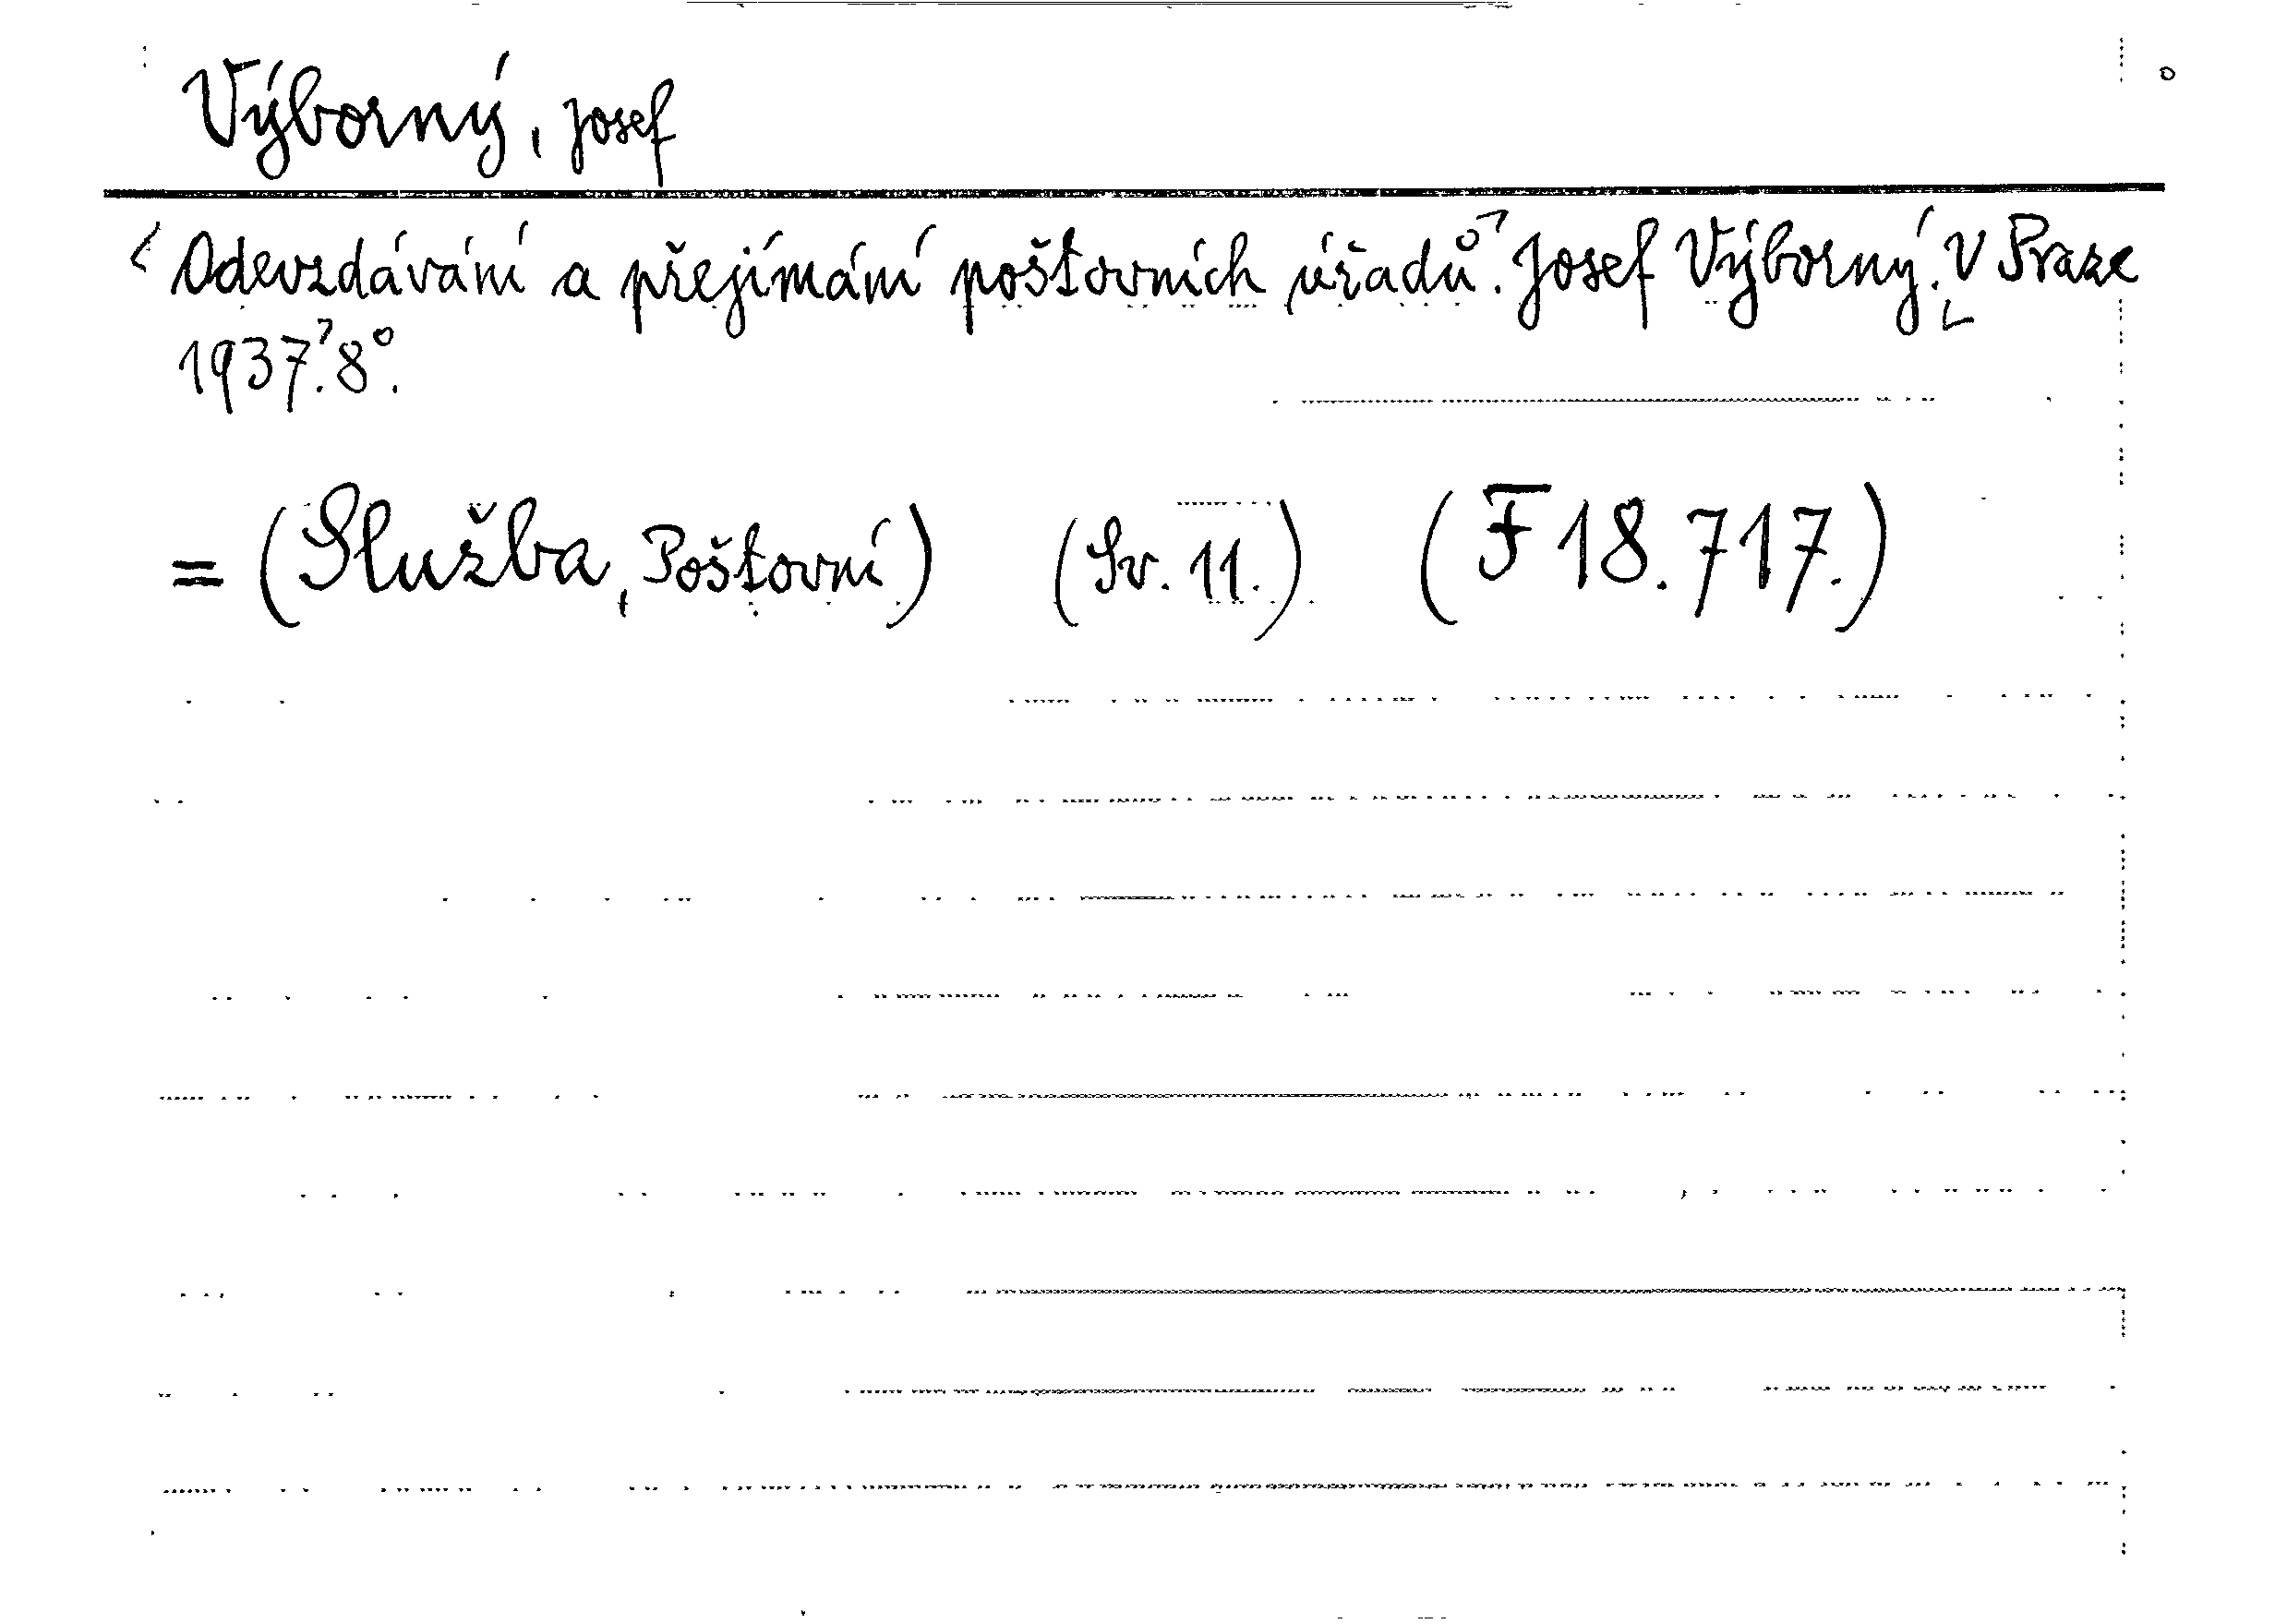 Výborný, Josef
Odevzdávání a přejímání poštovních úřadů. Josef Výborný. V Praze
1937. 8°.
= (Služba, Poštovní) (Sv. 11.) (F 18.717.)